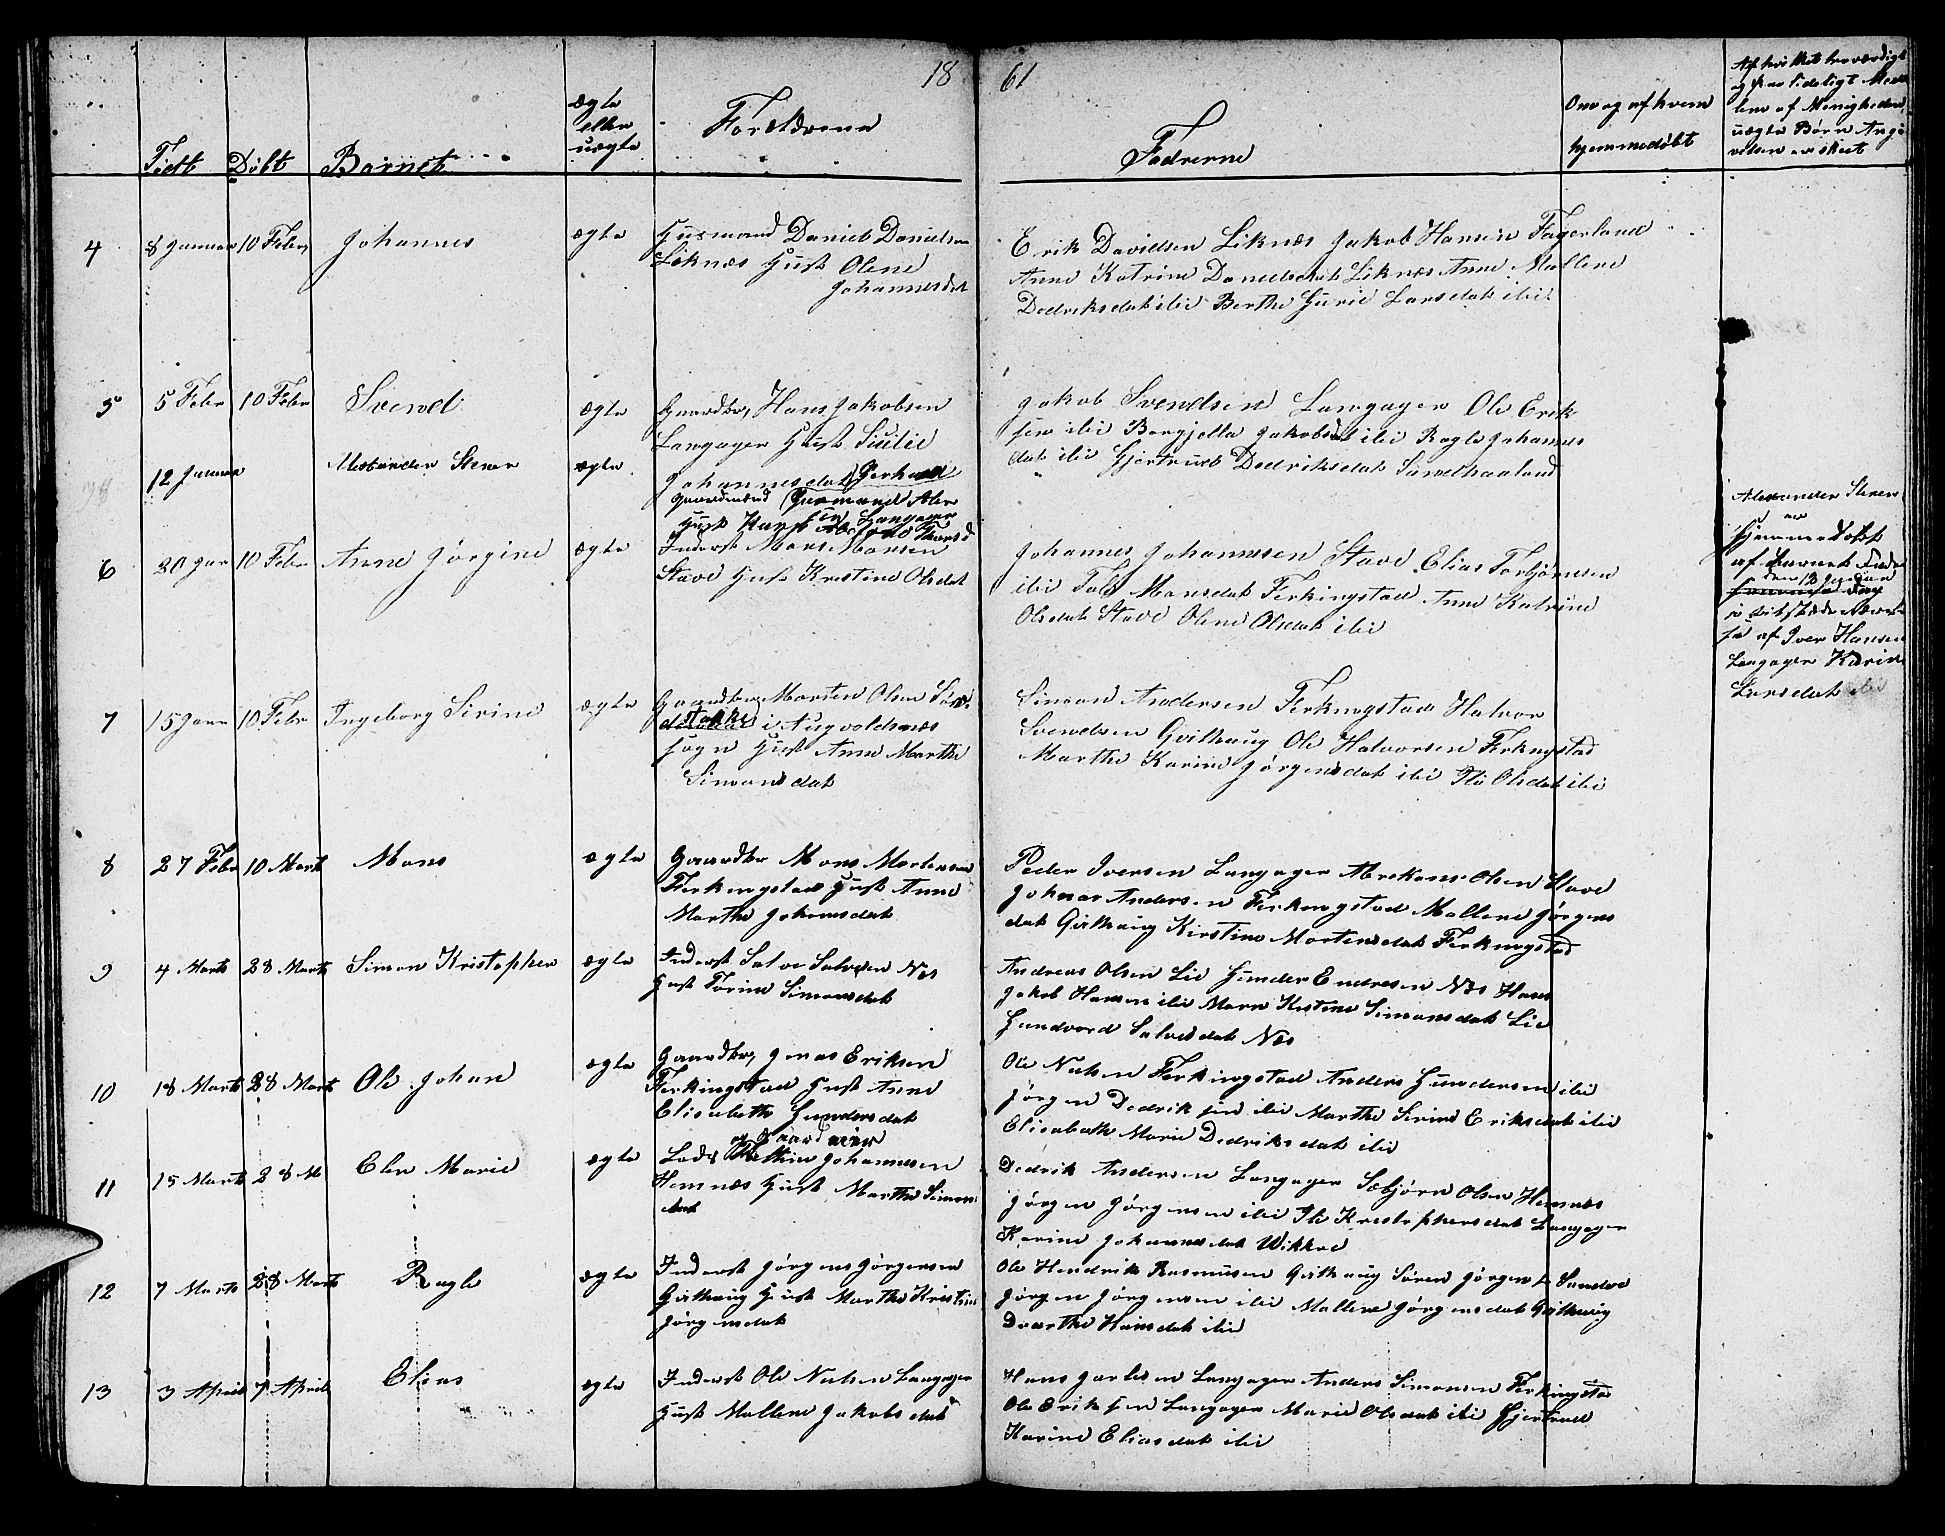 18 61
Født Døbt Barnet ægte eller uægte Forældrene Fadrerne Om og af hvem hjemmedøbt
Af hvilket troværdigt
og paalideligt Med
lem af Menigheden
uægte Børn Angi
velsen er skeet
4 8 Januar 10 Febr Johannes ægte Husmand Daniel Danielsen
Liknæs Hust Olene
Johannesdat
Erik Davidsen Liknæs Jakob Hansen Fagerland
Anne Katrine Danielsdat Liknæs Anne Mallene
Dedriksdat ibid Berthe Gurie Larsdat ibid
5 5 Febr 10 Febr Svend ægte Gaardbr Hans Jakobsen
Langager Hust Sicilie
Johannesdat
Jakob Svendsen Langager Ole Erik
sen ibid Borgjella Jakobsdat ibid Ragle Johannes
dat ibid Gjertrud Dedriksdat Sandhaaland
12 Januar Alexander Stener ægte
Gaardmand Husmand
Hust
Alexander Stener
er
Hjemmedøbt
af
den 12 Januar
af Iver Hansen
Langager Karine
Larsdat ibid
6 20 Jan 10 Febr Anne Jørgine ægte Inderst Mons Monsen
Stave Hust Kristine Olsdat
Johannes Johannesen Stave Elias Torbjørnsen
ibid Monsdat Ferkingstad Anne Katrine
Olsdat Stave Olene Olsdat ibid
7 15 Janr 10 Febr Ingeborg Serine ægte Gaardbr Morten Olsen
stokke i Augvoldsnæs
sogn Hust Anne Marthe
Simonsdat
Simon Andersen Ferkingstad Halvor
Svendsen Qvilhaug Ole Halvorsen Ferkingstad
Marthe Karine Jørgensdat ibid Olsdat ibid
8 27 Febr 10 Marts Mons ægte Gaardbr Mons Mortensen
Ferkingstad Hust Anne
Marthe Johansdat
Peder Iversen Langager Olsen Stave
Andersen Ferkingstad Mallene Jørgens
dat Qvilhaug Kirstine Mortensdat Ferkingstad
9 4 Marts 28 Marts Simon Kristopher ægte Inderst Salve Salvesen Næs
Hust Torine Simonsdat
Andreas Olsen Lie Gunder Endresen Næs Hans
Jakob Hansen ibid Maren Kistine Simonsdat Lie
Salvesdat Næs
10 18 Marts 28 Marts Ole Johan ægte Gaardbr Jonas Eriksen
Ferkingstad Hust Anne
Elisabeth Gundersdat
Ole Nilsen Ferkingstad Anders Gundersen ibid
Jørgen Dedriksen ibid Marthe Serine Eriksdat ibid
Elisabeth Marie Dedriksdat ibid
11 15 Marts 28 M Elen Marie ægte og Gaardeier
Lods Johannesen
Hemnæs Hust Marthe Simons
dat
Dedrik Andersen Langager Sæbjørn Olsen Hemnæs
Jørgen Jørgensen ibid Kristophersdat Langager
Karine Johannesdat Wikkre
12 7 Marts 28 Marts Ragle ægte Inderst Jørgen Jørgensen
Qvilhaug Hust Marthe Kristine
Jørgensdat
Ole Hendrik Rasmusen Qvilhaug Søren Jørgens Sandve
Jørgen Jørgensen ibid Mallene Jørgensdat Qvilhaug
Dorthe Hansdat ibid
13 3 April 7 April Elias ægte Inderst Ole Nilsen Langager
Hust Mallene Jakobsdat
Hans Langager Anders Simonsen Ferkingstad
Ole Eriksen Langager Marie Olsdat ibid Gjertrud
Karine Eliasdat ibid